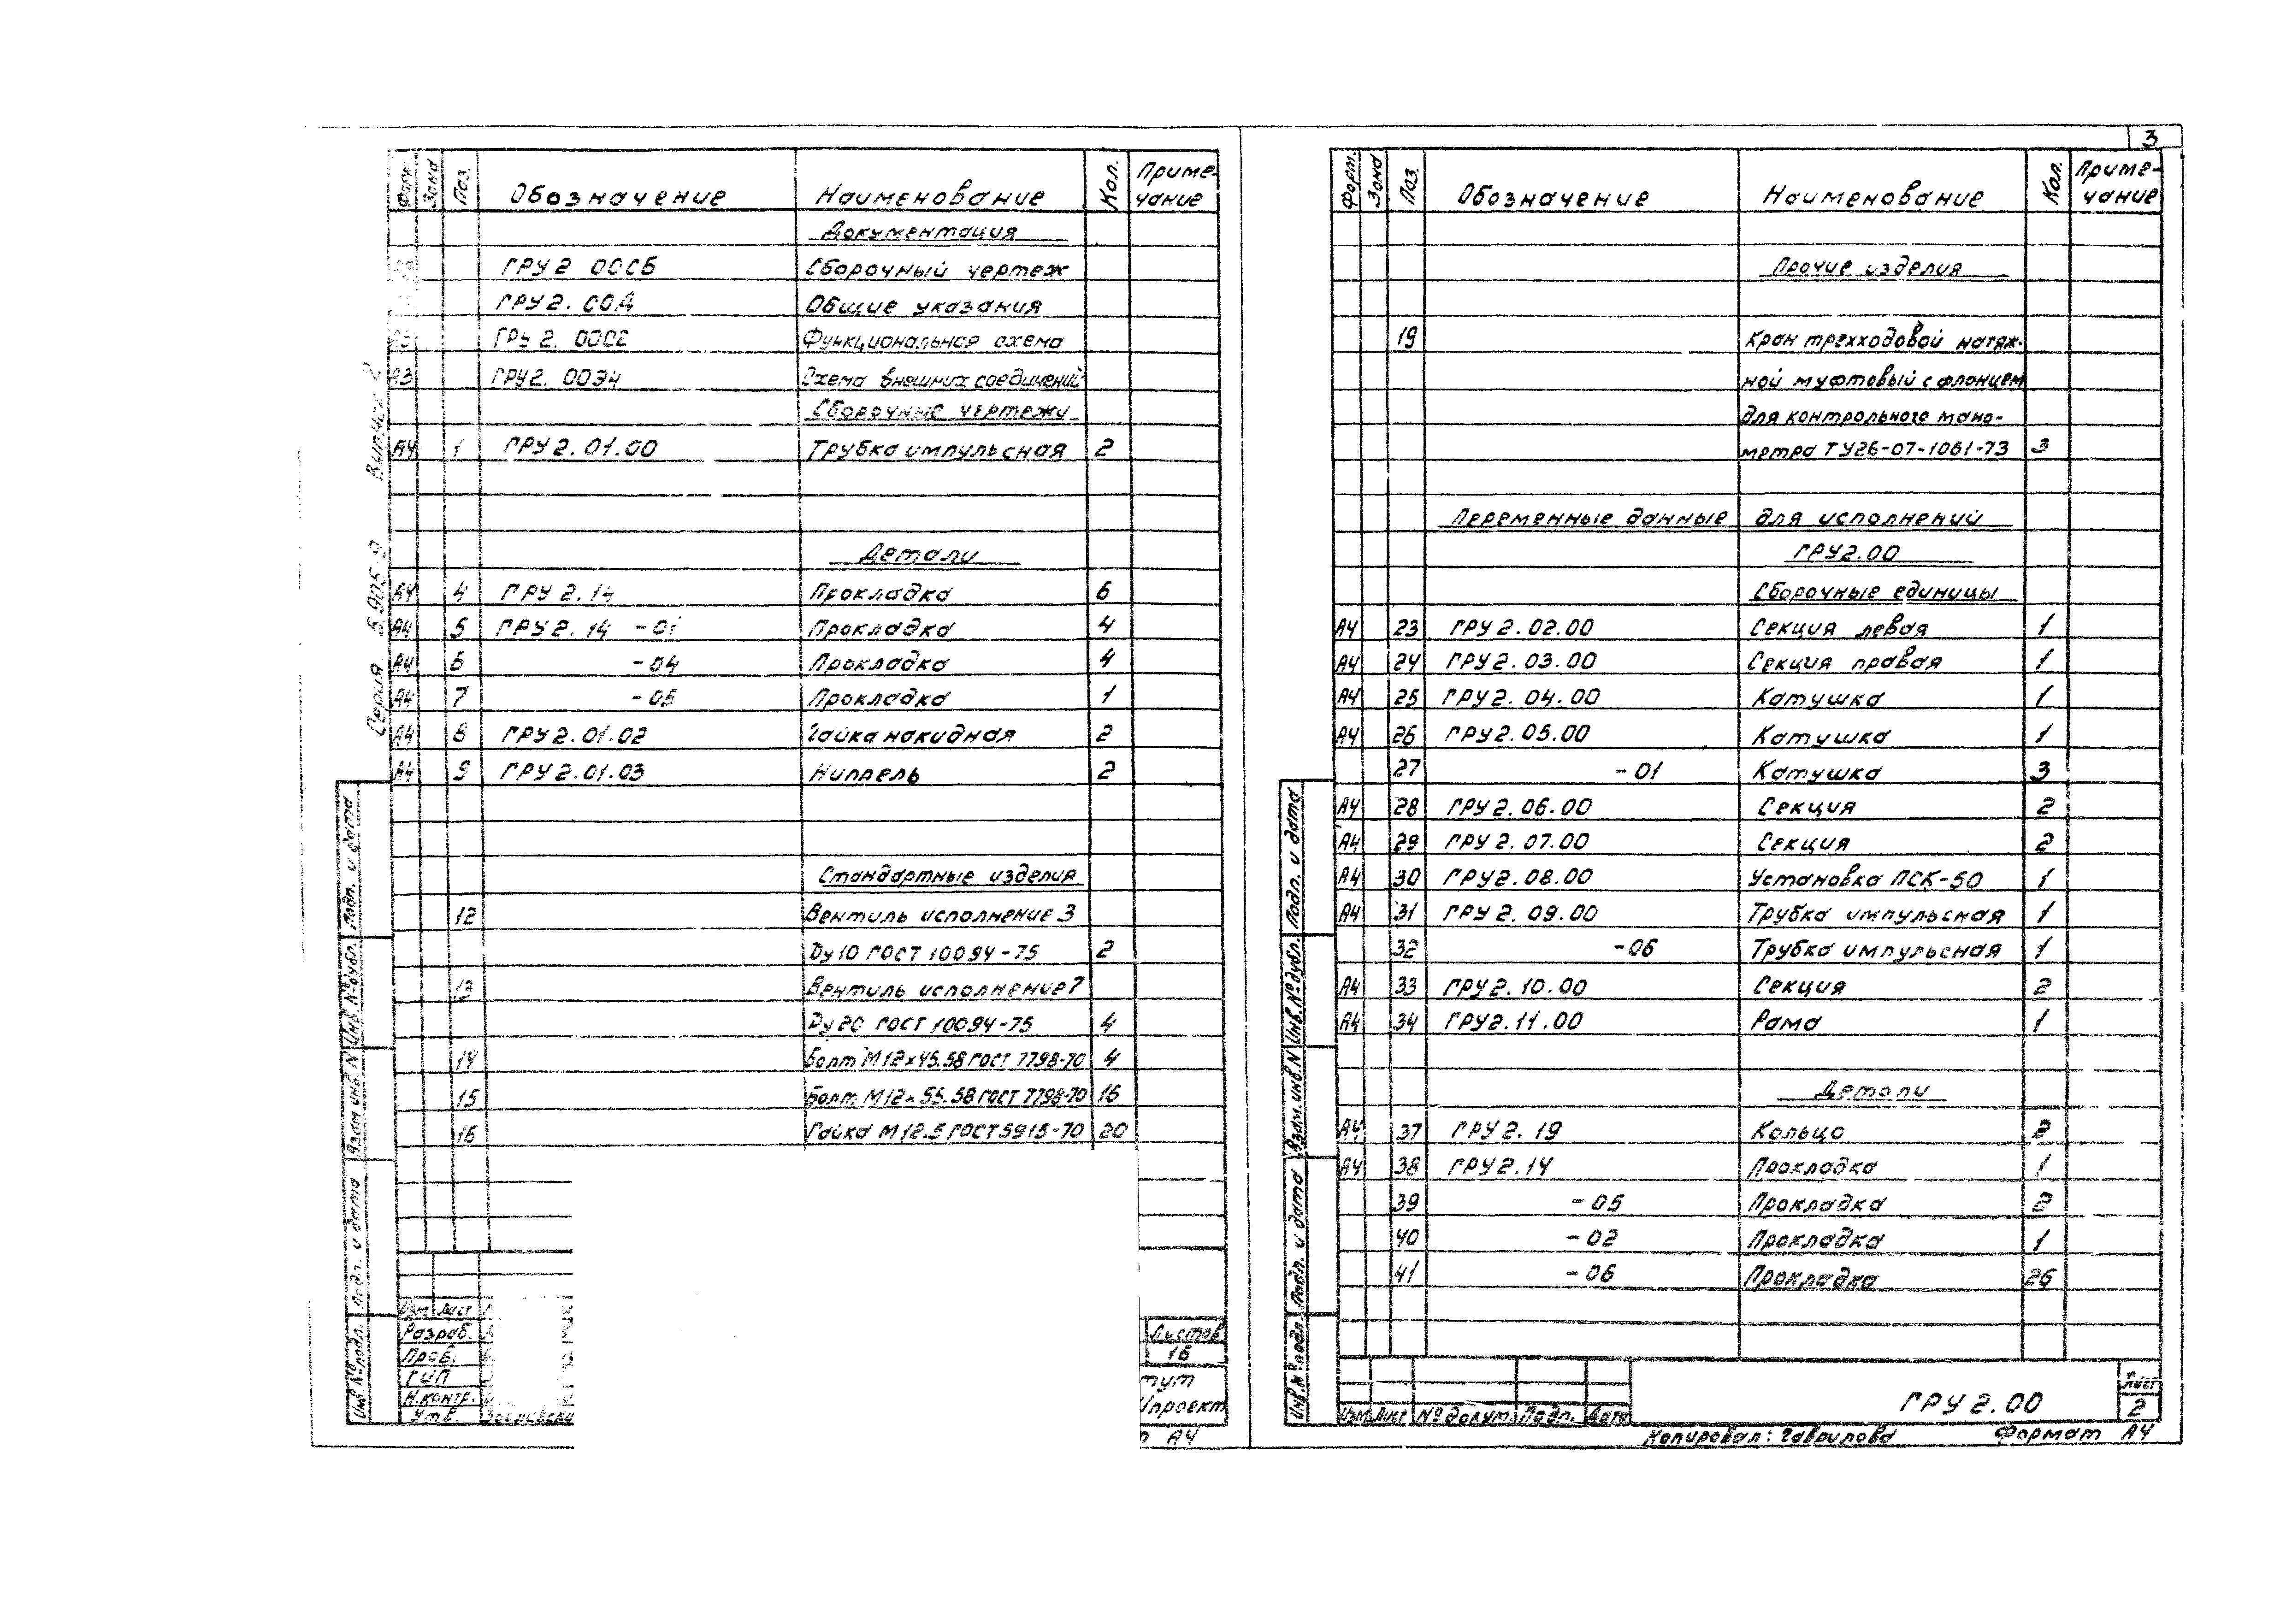 3
Форм. Зона Поз. Обозначение Наименование Кол. Приме-
чание
Документация
ГРУ 2 00СБ Сборочный чертеж
ГРУ 2. 00.Д Общие указания
ГРУ 2. 00С2 Функциональная схема
А3 ГРУ 2. 00Э4 Схема внешних соединений
Сборочные чертежи
А4 1 ГРУ 2.01.00 Трубка импульсная 2
Детали
А4 4 ГРУ 2.14 Прокладка 6
А4 5 ГРУ 2. 14 -01 Прокладка 4
А4 6 -04 Прокладка 4
А4 7 -05 Прокладка 1
А4 8 ГРУ 2.01.02 Гайка накидная 2
А4 9 ГРУ 2.01.03 Ниппель 2
Стандартные изделия
12 Вентиль исполнение 3
Ду 10 ГОСТ 10094-75 2
Вентиль исполнение 7
Ду 20 ГОСТ 10094-75 4
14 Болт М12х45.58 ГОСТ 7798-70 4
15 Болт М12х55.58 ГОСТ 7798-70 16
16 Гайка М12.5 ГОСТ 5915-70 20
Серия 5.905-9 Выпуск 2
Подп. и дата
Инв.№дубл.
Взам инв N
Подп. и дата
Инв №подл.
Изм Лист
Разраб. Листов
Пров. 16
ГИП тут
Н.контр. проект
Утв.
А4
Форм. Зона Поз. Обозначение Наименование Кол. Приме-
чание
Прочие изделия
19 Кран трехходовой натяж-
ной муфтовый с фланцем
для контрольного мано-
метра ТУ26-07-1061-73 3
Переменные данные для исполнений
ГРУ2.00
Сборочные единицы
А4 23 ГРУ 2.02.00 Секция левая 1
А4 24 ГРУ 2.03.00 Секция правая 1
А4 25 ГРУ 2. 04.00 Катушка 1
А4 26 ГРУ 2.05.00 Катушка 1
27 -01 Катушка 3
А4 28 ГРУ 2.06.00 Секция 2
А4 29 ГРУ 2. 07.00 Секция 2
А4 30 ГРУ 2.08.00 Установка ПСК-50 1
А4 31 ГРУ 2. 09.00 Трубка импульсная 1
32 -06 Трубка импульсная 1
А4 33 ГРУ 2.10.00 Секция 2
А4 34 ГРУ 2.11.00 Рама 1
Детали
А4 37 ГРУ 2. 19 Кольцо 2
А4 38 ГРУ 2.14 Прокладка 1
39 -05 Прокладка 2
40 -02 Прокладка 1
41 -06 Прокладка 26
Подп. и дата
Инв.№дубл.
Взам.инв.N
Подп. и дата
Инв.№подл.
Изм Лист №докум. Подп. Дата
ГРУ 2.00
Лист
2
Копировал: Гаврилова Формат А4